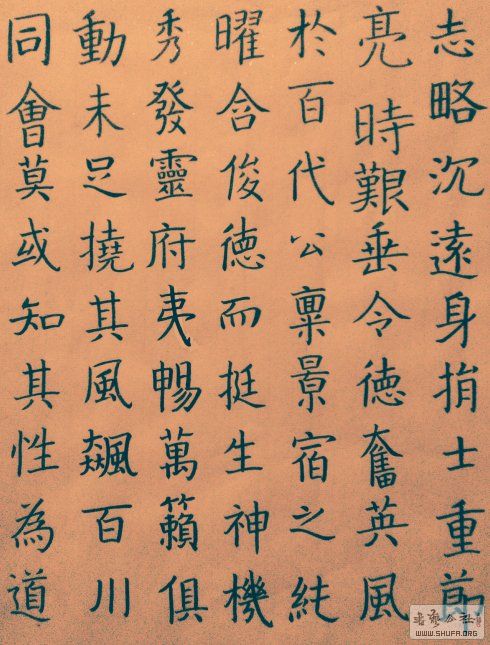 志略沉遠身捐士重節
亮時艱垂令德奮英風
於百代公稟景宿之純
曜含俊德而挺生神機
秀發靈府夷暢萬籟俱
動未足撓其風飆百川
同會莫或知其性為道
书艺公社
WWW.SHUFA.ORG